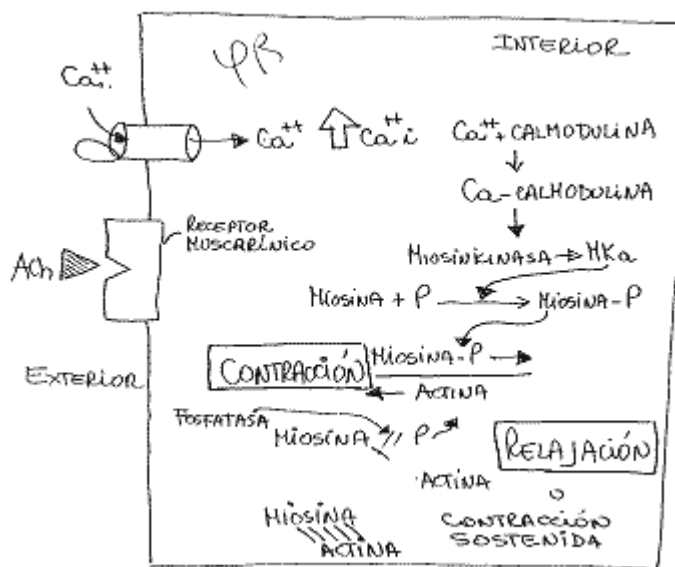 INTERIOR
Ca++
Ca++ Ca++i
Ca+++ CALMODULINA
Ca-CALMODULINA
RECEPTOR
MUSCARÍNICO
ACh
MIOSINKINASA → MKa
MIOSINA + P → MIOSINA-P
EXTERIOR
CONTRACCIÓN
MIOSINA-P →
← ACTINA
FOSFATASA
MIOSINA // P
RELAJACIÓN
ACTINA
O
CONTRACCIÓN
SOSTENIDA
MIOSINA
ACTINA